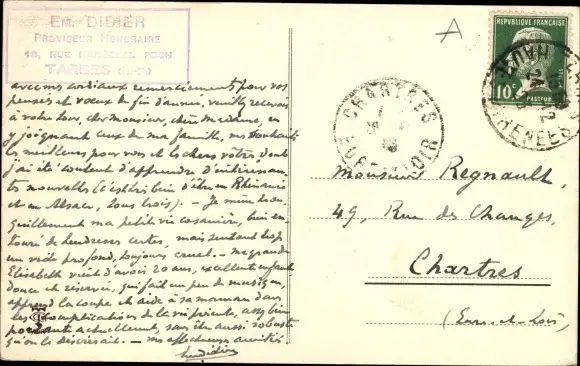 Em. DIDIER
PROVISEUR HONORAIRE
18, RUE MARÉCHAL FOCH
TARBES (H.-P.)
avec ses cordiaux remerciements pour vos
pensées et vœux de fin d'année, veuillez recevoir
à votre tour, cher monsieur, chère madame, en
y joignant ceux de ma famille, mes souhaits
les meilleurs pour vous et les chers vôtres dont
j'ai été content d'apprendre d'intéressan
tes nouvelles (c'est très bien d'être en Rhénanie
et en Alsace, tous trois). - Je mène tran
quillement ma petite vie casanière, bien en
touré de tendresses certes, mais sentant trop
un vide profond, toujours cruel. - ma grande
Elisabeth vient d'avoir 20 ans, excellente enfant
douce et réservée, qui fait un peu de musique,
apprend la coupe et aide à sa maman dans
les complications de la vie présente, assez bien
portante actuellement, sans être aussi robuste
qu'on le désirerait. - mes affectueuses amitiés
EmDidier
A
RÉPUBLIQUE FRANÇAISE
10c
PASTEUR
CHARTRES
EURE-ET-LOIR
PYRENEES
Monsieur Regnault,
49, Rue des Changes,
Chartres
(Eure-et-Loir)